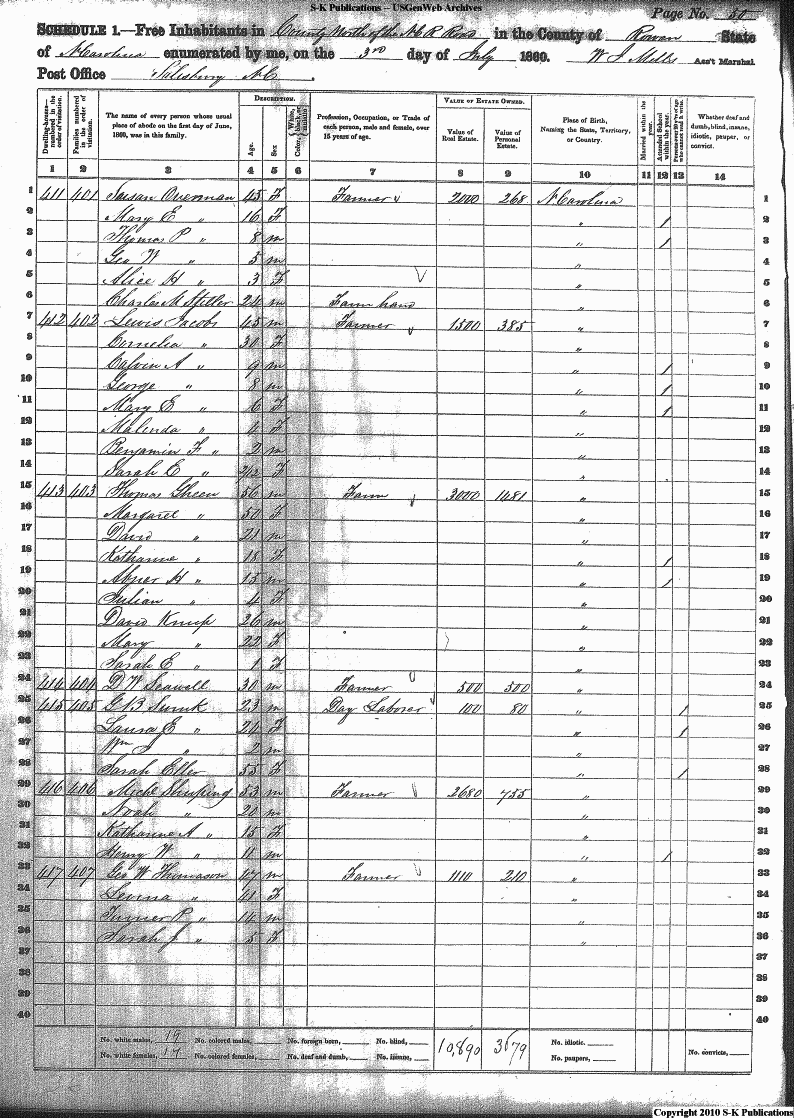 S-K Publications – USGenWeb Archives
Page No. 50
SCHEDULE 1.—Free Inhabitants in County North of the N C R Road in the County of Rowan State
of N Carolina enumerated by me, on the 3rd day of July 1860. W J Mills Ass't Marshal.
Post Office Salisbury N C.
Dwelling-houses—numbered in the order of visitation. Families numbered in the order of visitation. The name of every person whose usual place of abode on the first day of June, 1860, was in this family. DESCRIPTION. Age. Sex. Color, White, black, or mulatto. Profession, Occupation, or Trade of each person, male and female, over 15 years of age. VALUE OF ESTATE OWNED. Value of Real Estate. Value of Personal Estate. Place of Birth, Naming the State, Territory, or Country. Married within the year. Attended School within the year. Persons over 20 y'rs of age who cannot read & write. Whether deaf and dumb, blind, insane, idiotic, pauper, or convict.
1 2 3 4 5 6 7 8 9 10 11 12 13 14
1 411 401 Susan Overman 45 F Farmer 2000 268 N Carolina 1
2 Mary E " 16 F " 1 2
3 Thomas P " 8 m " 1 3
4 Geo W " 5 m " 4
5 Alice H " 3 F " 5
6 Charles M Stiller 24 m Farm hand " 6
7 412 402 Lewis Jacobs 45 m Farmer 1500 385 " 7
8 Cornelia " 30 F " 8
9 Calvin A " 9 m " 1 9
10 George " 8 m " 1 10
11 Mary E " 6 F " 1 11
12 Malinda " 4 F " 12
13 Benjamin F " 2 m " 13
14 Sarah E " 2/12 F " 14
15 413 403 Thomas Gheen 56 m Farm 3000 1481 " 15
16 Margaret " 50 F " 16
17 David " 21 m " 17
18 Kathanne " 18 F " 1 18
19 Abner H " 15 m " 1 19
20 Julian " 4 F " 20
21 David Knup 26 m " 21
22 Mary " 22 F " 22
23 Sarah E " 1 F " 23
24 414 404 D W Seawell 30 m Farmer 500 500 " 24
25 415 405 G B 23 m Day Laborer 100 80 " 1 25
26 Laura E " 24 F " 1 26
27 Wm J " 2 m " 27
28 Sarah Eller 55 F " 1 28
29 416 406 Michl Shuping 53 m Farmer 2680 755 " 29
30 Noah " 20 m " 30
31 Kathanne A " 15 F " 31
32 Henry W " 11 m " 1 32
33 417 407 Geo W Thomason 47 m Farmer 1110 210 " 33
34 Levina " 41 F " 34
35 Turner P " 14 m " 35
36 Sarah J " 5 F " 36
37 37
38 38
39 39
40 40
No. white males, 19 No. colored males, No. foreign born, No. blind, 10,890 3679 No. idiotic. No. convicts,
No. white females, 17 No. colored females, No. deaf and dumb, No. insane, No. paupers,
Copyright 2010 S-K Publications